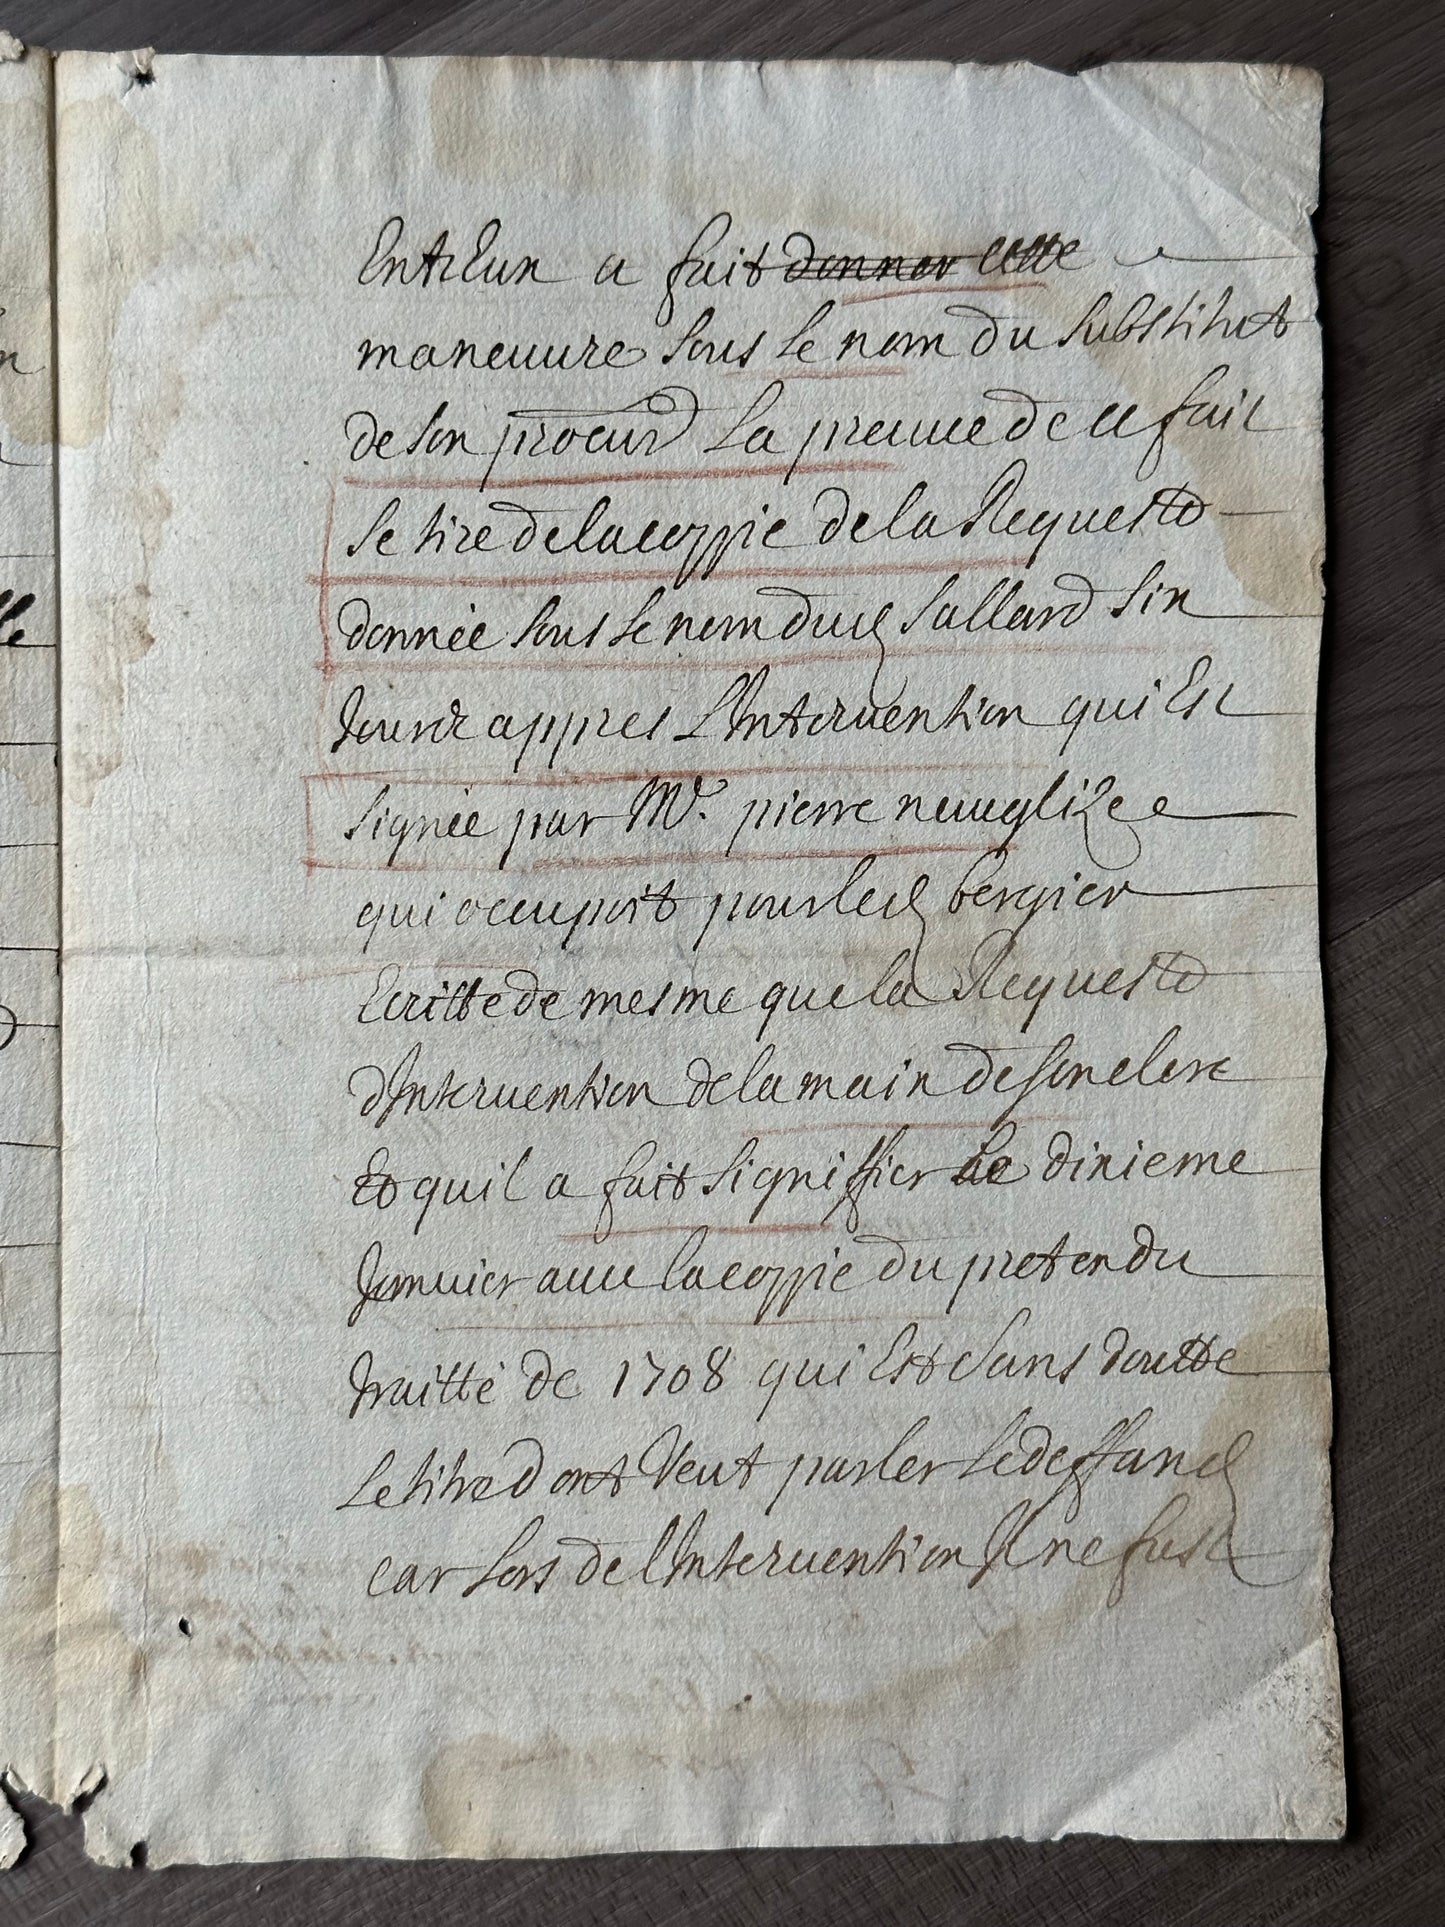 Entreux a fait donner cette
maneuure sous le nom du substitut
de son procur La preuue de ce fait
se tire de la coppie de la Requeste
donnée sous le nom dud Sallard six
Jours appres L'Interuention qui Est
signée par Me. pierre neuuglize
qui occupoit pour led bergier
Ecritte de mesme que la Requeste
d'Interuention de la main de son clerc
Et quil a fait signiffier le dixieme
Januier auec la coppie du pretendu
traitté de 1708 qui Est sans doutte
Le titre dont Veut parler Le deffand
car Lors de l'Interuention Il ne fust